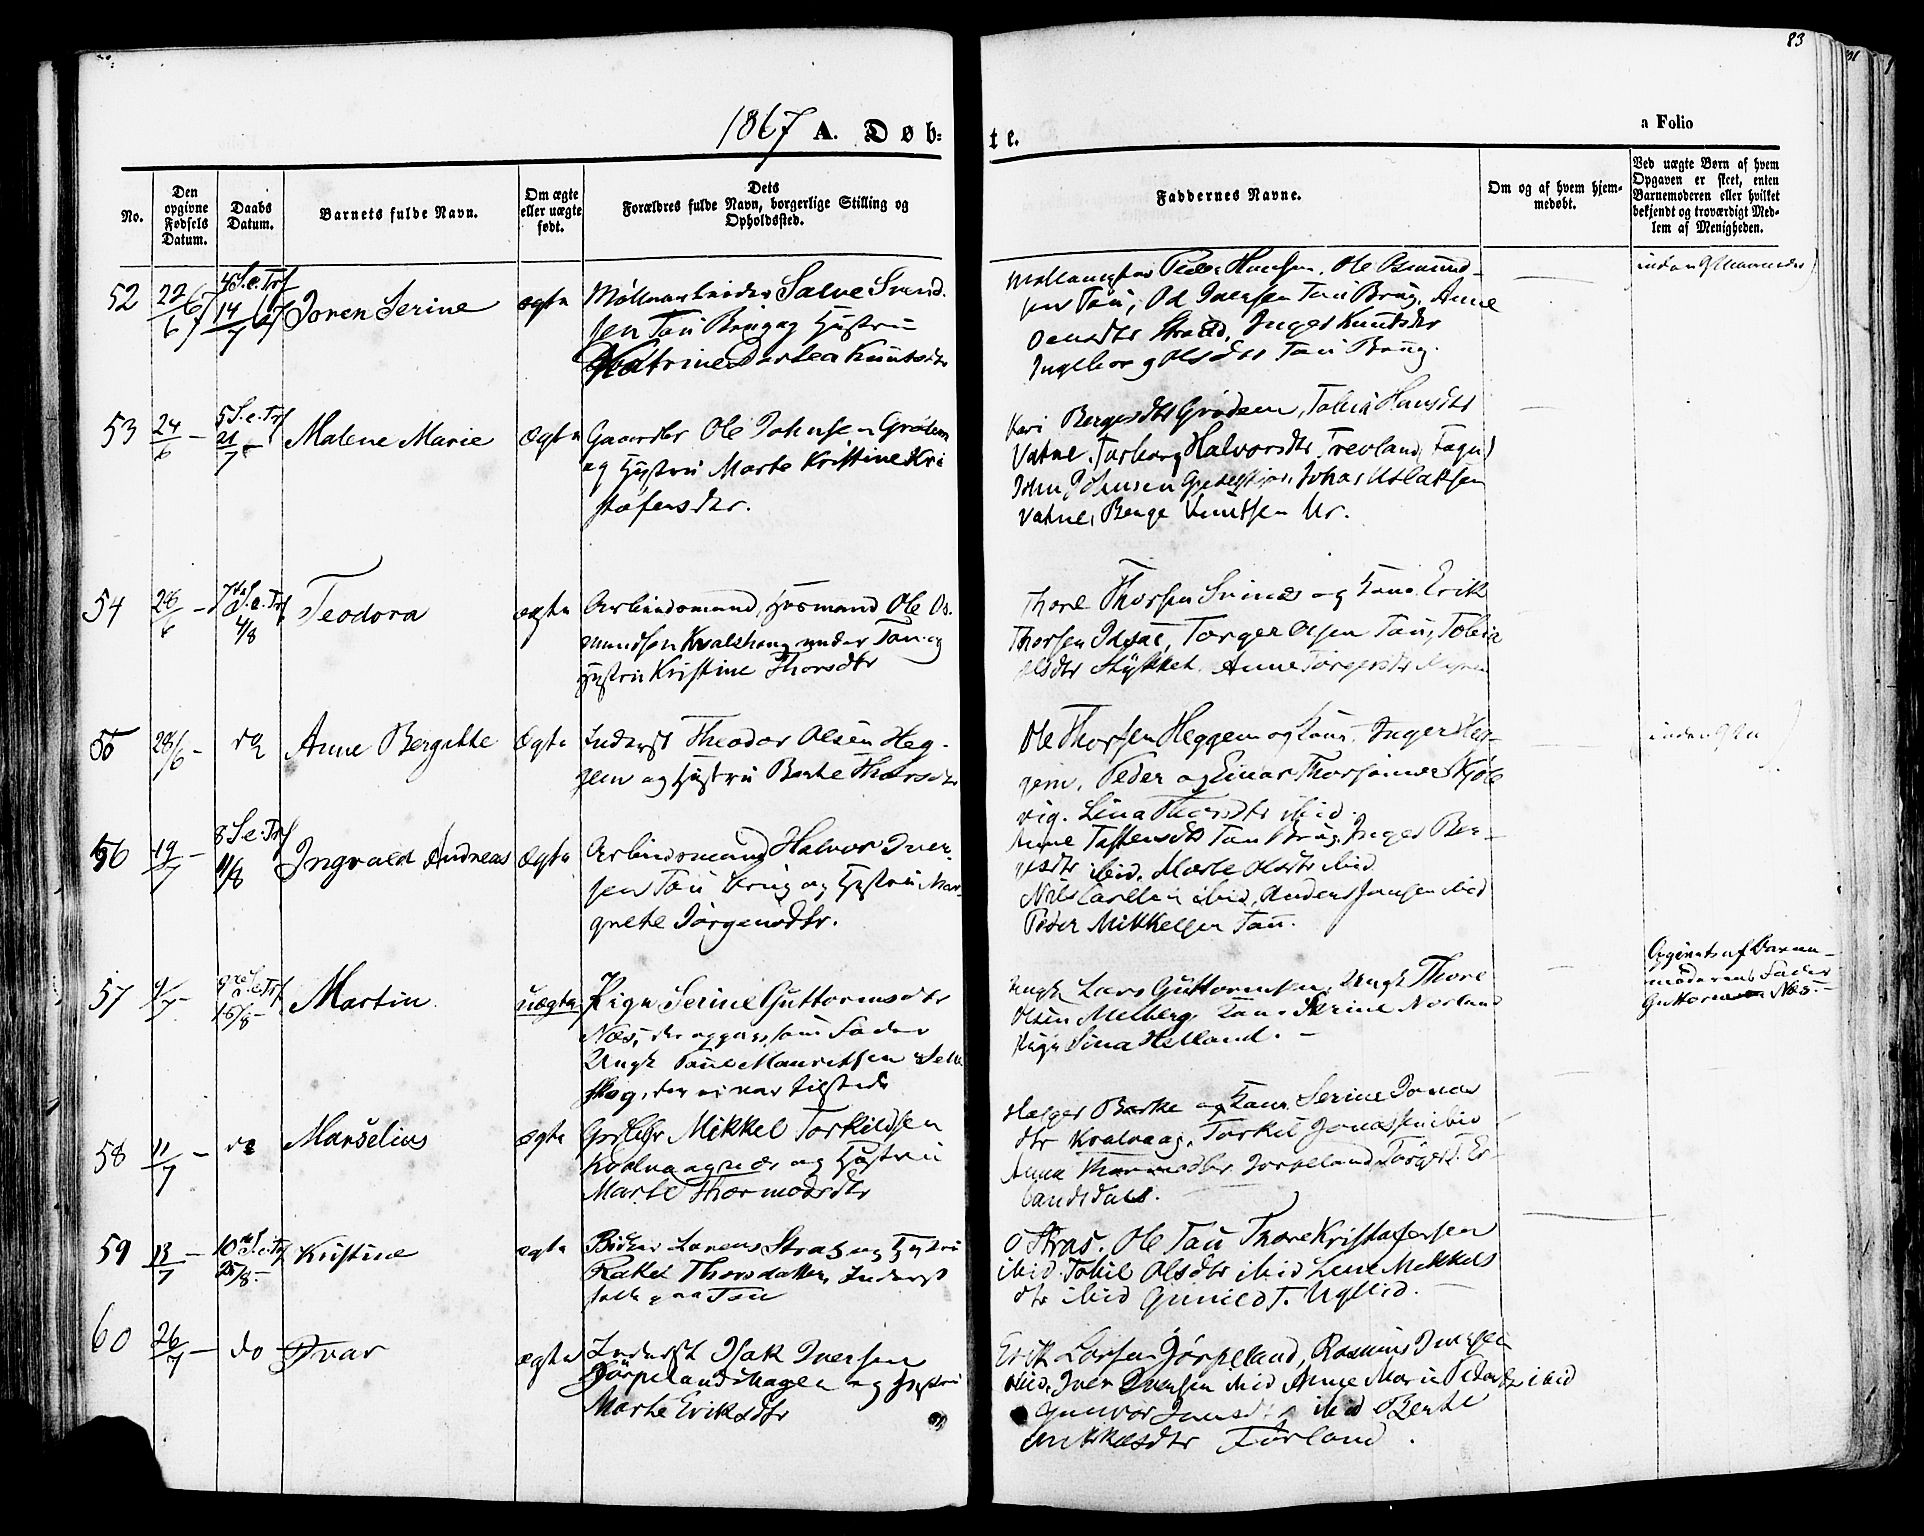 83
1867 A. Døb-
te.
a Folio
No.
Den opgivne Fødsels Datum.
Daabs Datum.
Barnets fulde Navn.
Om ægte eller uægte født.
Dets Forældres fulde Navn, borgerlige Stilling og Opholdssted.
Faddernes Navne.
Om og af hvem hjemmedøbt.
Ved uægte Børn af hvem Opgaven er skeet, enten Barnemoderen eller hvilket bekjendt og troværdigt Medlem af Menigheden.
52 22/6 67 4 S.e.Trf 14/7 67 Joren Serine ægte Møllearbeider Salve Svend-
sen Tau Brug og Hustru
Katrine Dortea Knutsdtr
Peder Hansen, Ole Osmund-
sen Tau, Od Iversen Tau Brug, Anne
Strand, Inger Knutsdtr
Ingeborg Olsdtr Tau Brug.
53 24/6 - 5 S.e.Trf 21/7 - Malene Marie Ægte Gaardbr Ole Johnsen Grødem
og Hustru Marte Kristine Kri
stofersdtr.
Kari Bergesdtr Grødem, Tobia Hansdtr
Vatne, Torborg Halvorsdtr Trevland,
John Johnsen Johas Aslaksen
Vatne, Berge Knutsen Ur.
54 28/6 - 7de S.e.Trf 4/8 Teodora ægte Arbeidsmand, Husmand Ole Os-
mundsen Kvalshaug under Tau og
Hustru Kristine Thorsdtr
Thore Thorsen Svines og Kone, Erik
Thorsen Idsøe, Torger Olsen Tau, Tobia
Olsdtr Stykket, Anne Torgersdtr
55 28/6 - do Anne Bergitte Ægte Inderst Theodor Olsen Heg-
gem og Hustru Berte Thorsdtr
Ole Thorsen Heggem og Kone, Inger Heg-
gem, Peder og Einar Thorsønner Kjøle
vig. Lina Thorsdtr ibid.
56 19/7 - 8 S.e.Trf 11/8 Ingvald Andreas Ægte Arbeidsmand Halvor Iver-
sen Tau brug og Hustru Mar-
grete Jørgensdtr.
Anne Tostensdtr Tau Brug, Inger Ber-
gesdtr ibid. Marte Olsdtr ibid
Nils Carlsen ibid, Anders Jansen ibid
Peder Mikkelsen Tau.
57 9/7 - 9de S.e.Trf 18/8 - Martin uægte Pige Serine Guttormsdtr
Næs, der opgav som Fader
Ungk Poul Mauritsen
skog, der ei var tilstede
Ungk Lars Guttormsen, Ungk Thore
Olsen Melberg, Kone Serine Norland
Pige Sina Helland. -
Opgivet af Barne-
moderens Fader
Guttorm Næs. -
58 11/7 - do Marselius ægte Gbr Mikkel Torkildsen
Kvalvaagnæs og Hustru
Marte Thormodsdtr
Holger Barke og Kone Serine Jonas
dtr Kvalvaag, Torkel Jonassen ibid
Anna Thormodsdtr Jørpeland, Torger T. Er-
landsdal.
59 13/7 - 10de S.e.Trf 25/8 - Kristine ægte Bødker Lorens Stras og Hustru
Rakel Thorsdatter, Inderst
folk paa Tau
O Straas. Ole Tau Thore Kristofersen
ibid. Tobie Olsdtr ibid Lene Mikkels
dtr ibid Gunild T. Uglid.
60 26/7 - do Ivar ægte Inderst Isak Iversen
Jørpelandshagen og Hustru
Marte Eriksdtr
Erik Larsen Jørpeland, Rasmus Iversen
ibid, Iver Iversen ibid Anne Marie Pedersdtr ibid
Gunvor Jansdtr ibid Bente
Mikkelsdtr Førland.